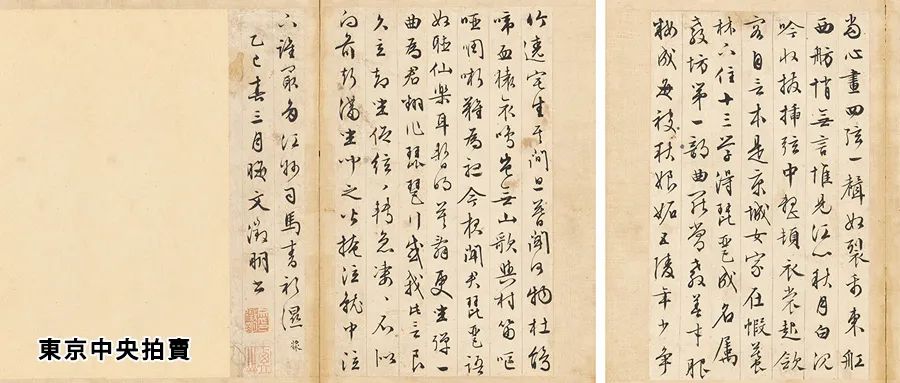 當心畫四弦一聲如裂帛東舡
西舫悄無言唯見江心秋月白沉
吟收撥插弦中整頓衣裳起斂
容自言本是京城女家在蝦蟇
陵下住十三學得琵琶成名屬
教坊第一部曲罷常教善才服
粧成每被秋娘妬五陵年少爭
竹遶宅生其間旦暮聞何物杜鵑
啼血猿哀鳴豈無山歌與村笛嘔
啞啁哳難為聽今夜聞君琵琶語
如聽仙樂耳暫明莫辭更坐彈一
曲為君翻作琵琶行感我此言良
久立却坐促弦弦轉急淒淒不似
向前聲滿坐聞之皆掩泣就中泣
下誰最多江州司馬青衫濕
乙巳春三月晦文徵明書
東京中央拍賣